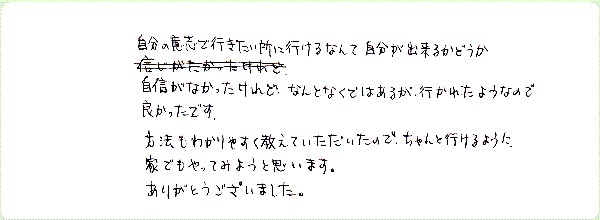 自分の意志で行きたい所に行けるなんて自分が出来るかどうか
信じがたかったけれど
自信がなかったけれど、なんとなくではあるが、行かれたようなので
良かったです。
方法もわかりやすく教えていただいたので、ちゃんと行けるように、
家でもやってみようと思います。
ありがとうございました。